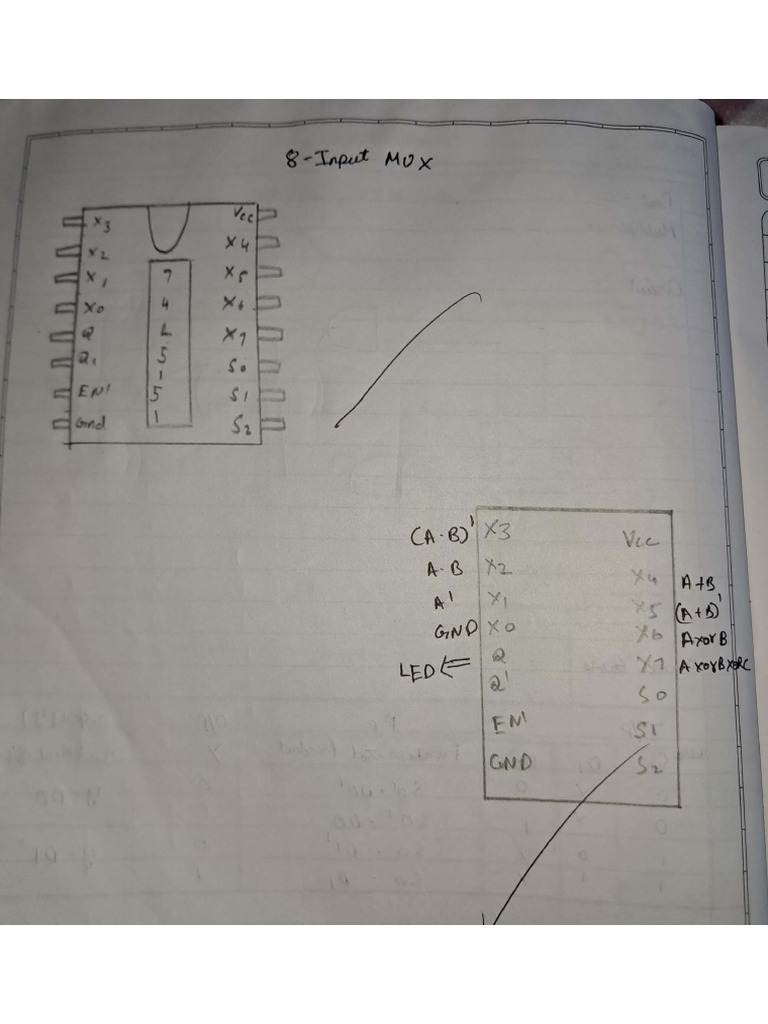 8-Input MUX
X3
X2
X1
X0
Q
Q1
EN'
Gnd
7
4
L
5
1
5
1
Vcc
X4
X5
X6
X7
S0
S1
S2
(A·B)' X3
A·B X2
A' X1
GND X0
LED Q
Q'
EN'
GND
Vcc
X4 A+B
X5 (A+B)'
X6 A xor B
X7 A xor B xor C
S0
S1
S2